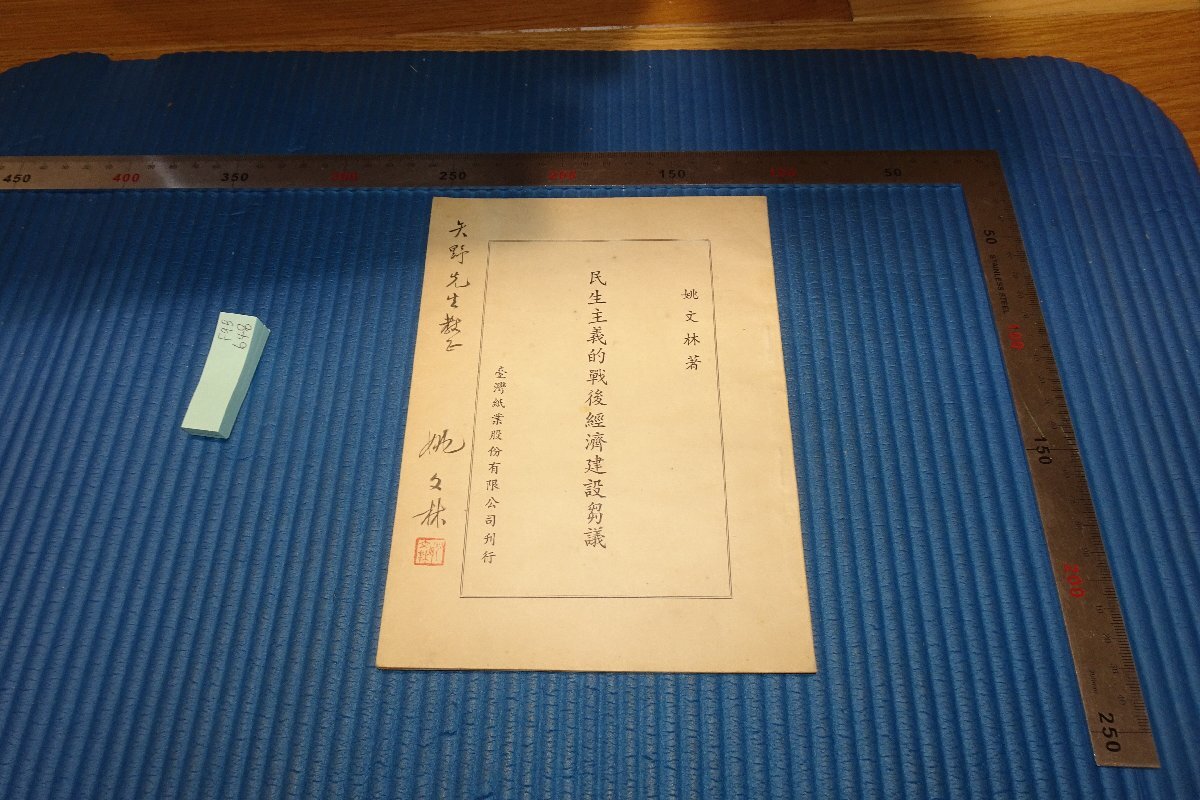 姚文林著
民生主義的戰後經濟建設芻議
臺灣紙業股份有限公司刊行
矢野先生教正
姚文林
450
400
350
300
250
200
150
100
50
50
STAINLESS STEEL
100
150
200
250